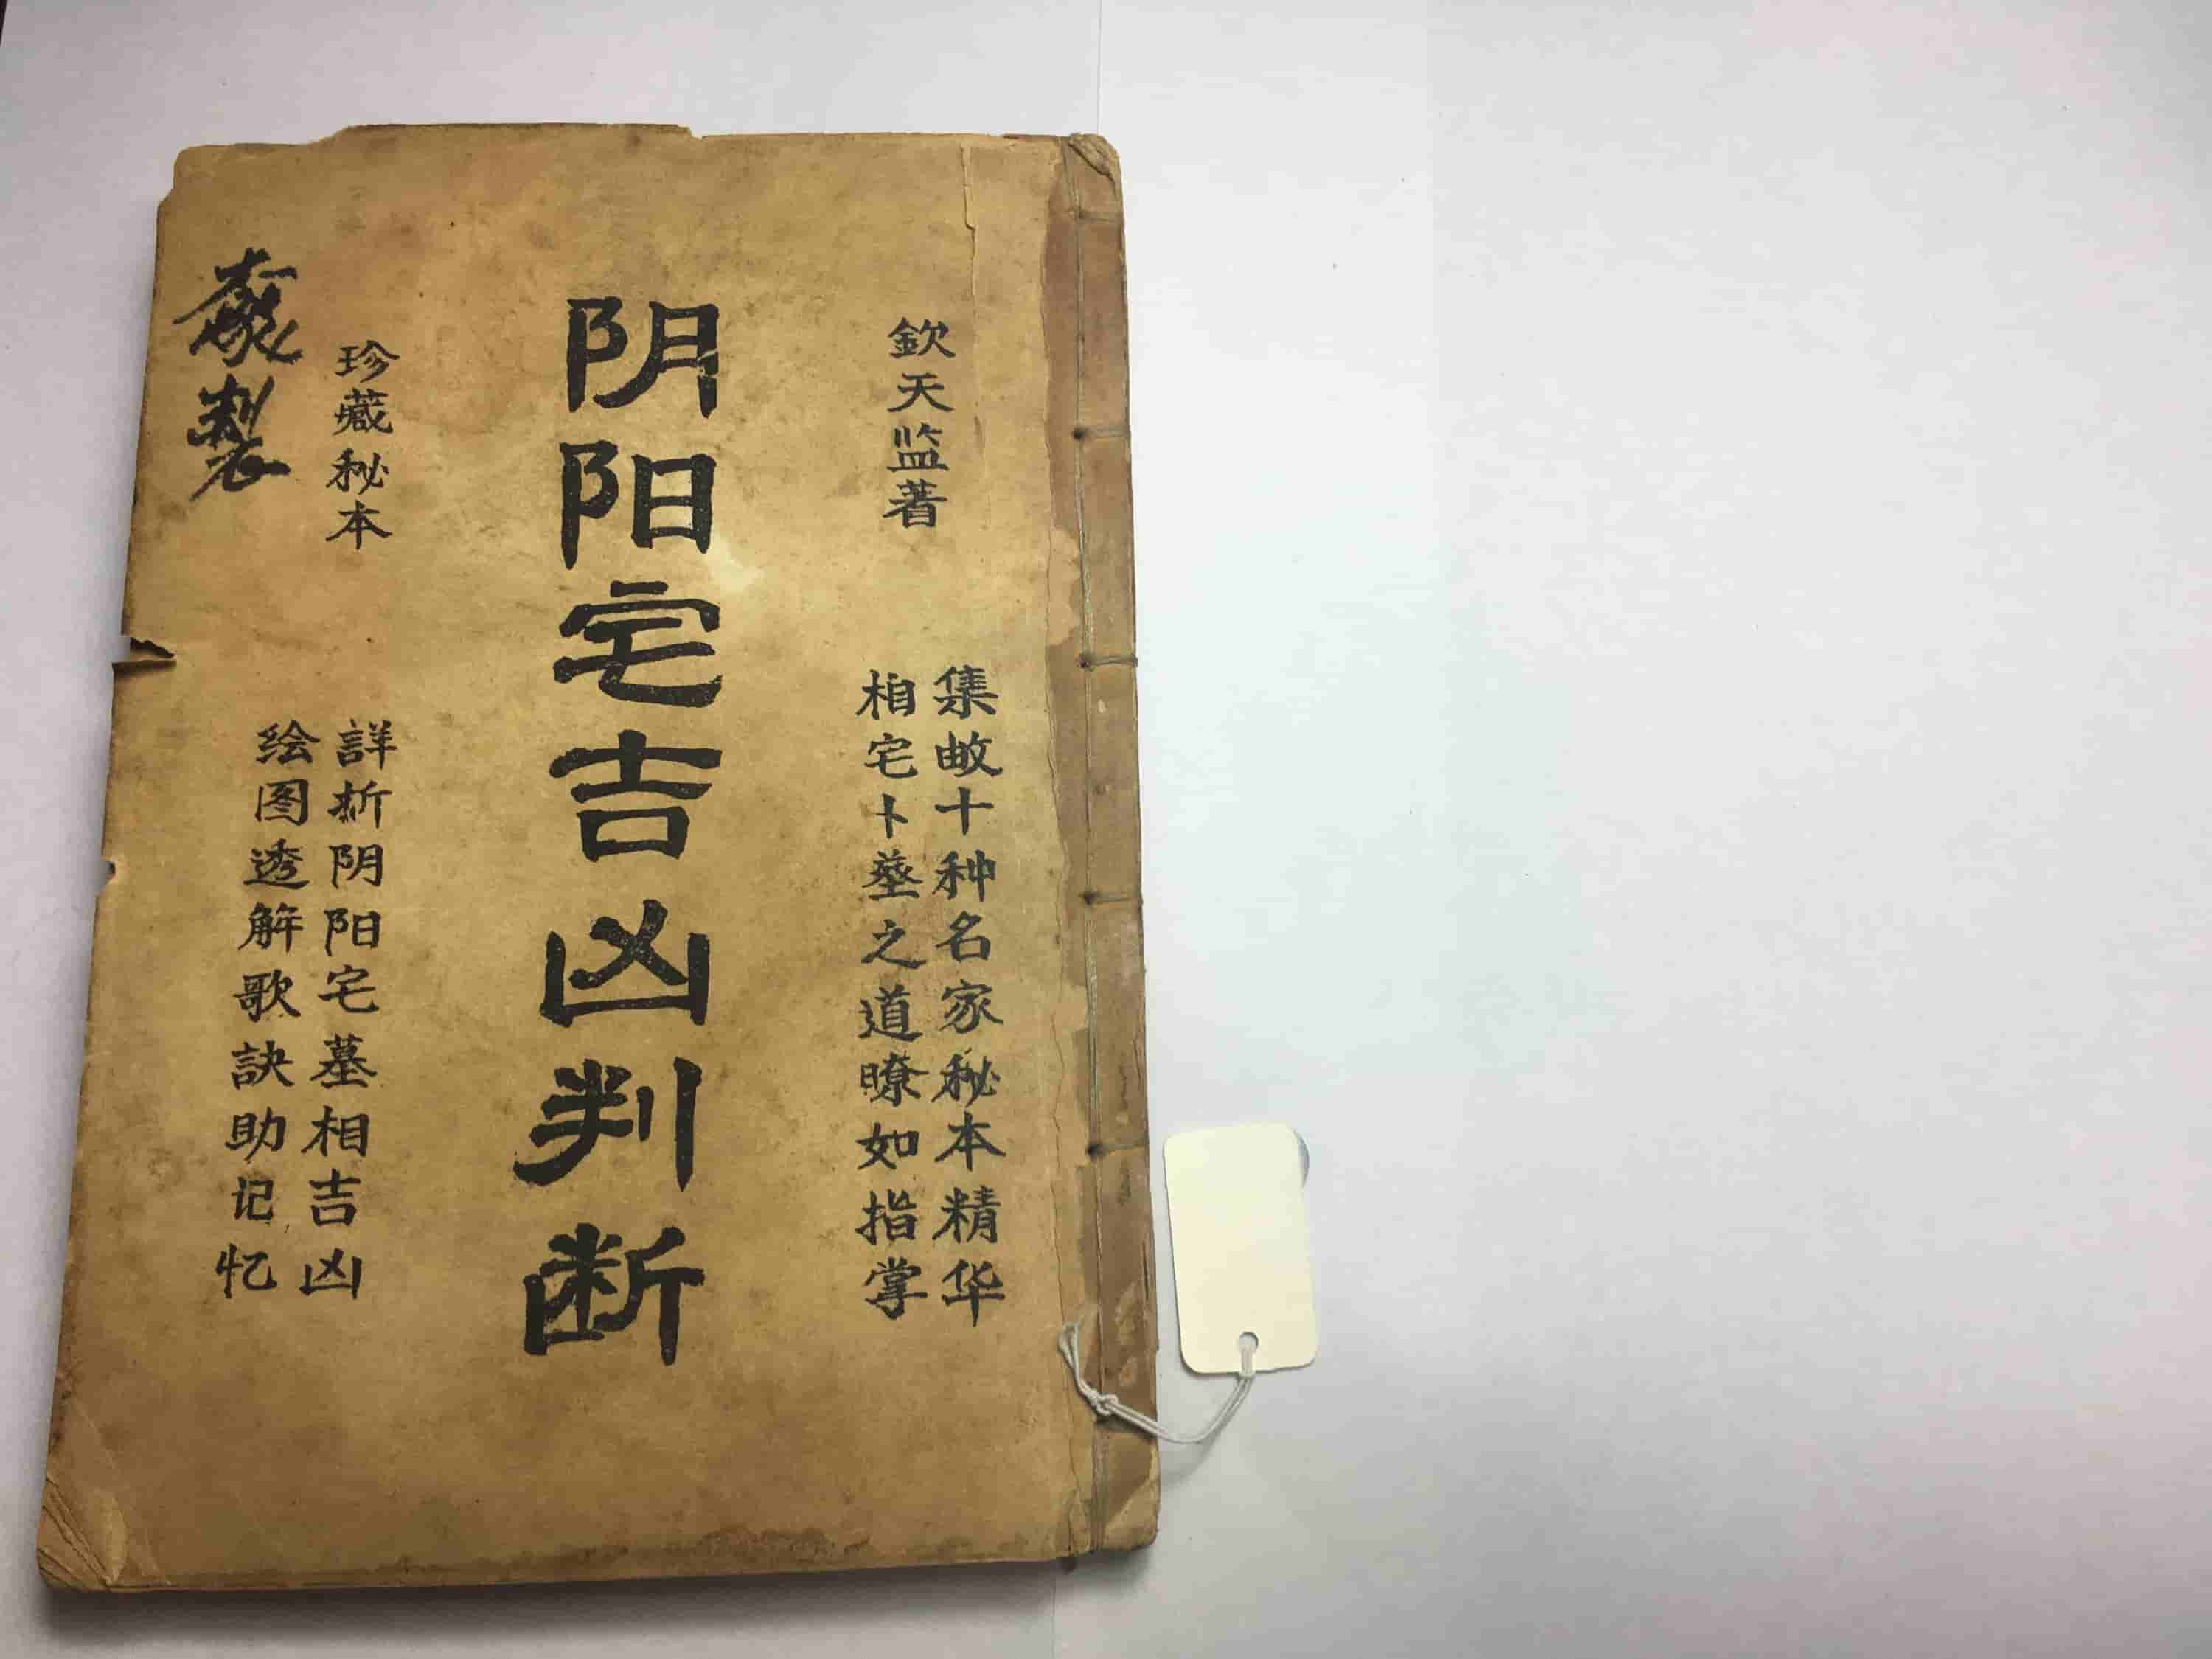 钦天监著
集故十种名家秘本精华
相宅卜茔之道暸如指掌
阴阳宅吉凶判断
珍藏秘本
詳析阴阳宅墓相吉凶
绘图透解歌訣助记忆
製